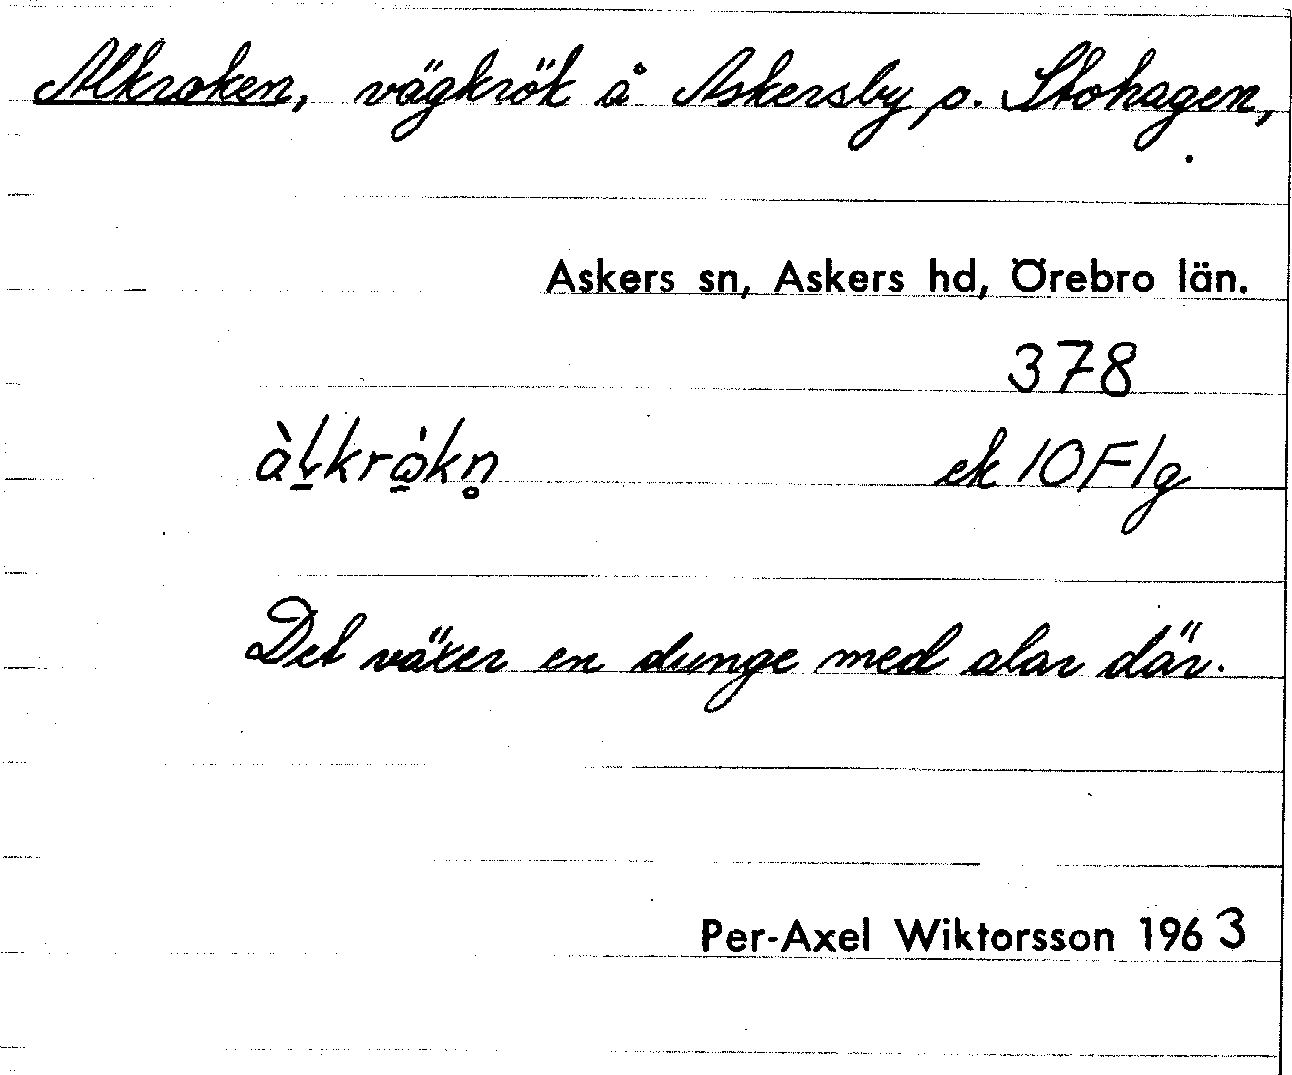 Alkroken, vägkrök å Askersby o. Stohagen,
Askers sn, Askers hd, Örebro län.
378
àḷkrὼ̠kn̥ ek 10F1g
Det växer en dunge med alar där.
Per-Axel Wiktorsson 1963